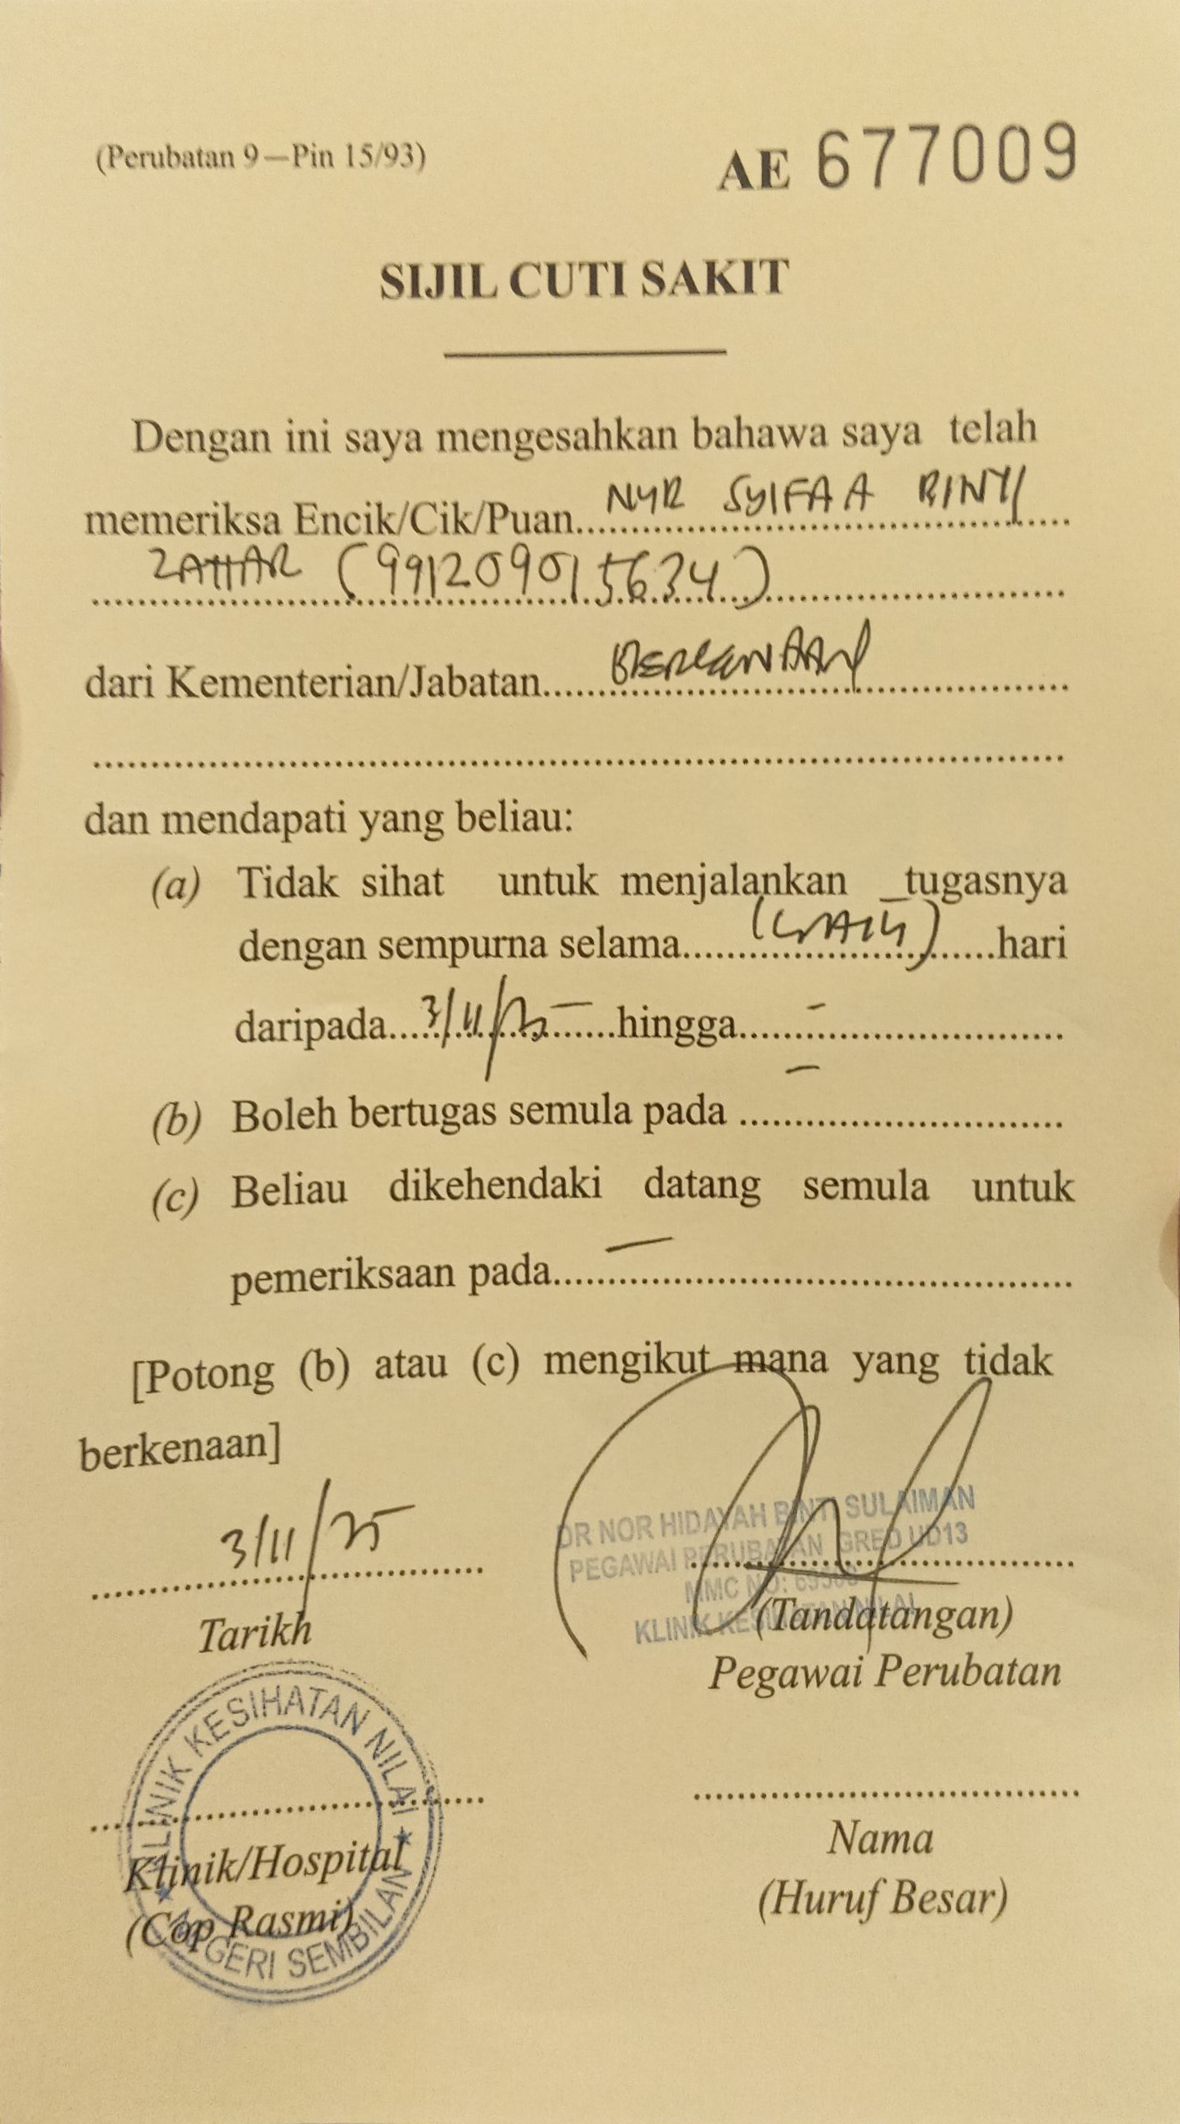 (Perubatan 9—Pin 15/93)
AE 677009
SIJIL CUTI SAKIT
Dengan ini saya mengesahkan bahawa saya telah
memeriksa Encik/Cik/Puan NUR SYIFAA BINTI
ZAHAR (991209015634)
dari Kementerian/Jabatan BERKENAAN
dan mendapati yang beliau:
(a) Tidak sihat untuk menjalankan _tugasnya
dengan sempurna selama hari
daripada 3/11/25 hingga -
(b) Boleh bertugas semula pada -
(c) Beliau dikehendaki datang semula untuk
pemeriksaan pada -
[Potong (b) atau (c) mengikut mana yang tidak
berkenaan]
3/11/25
Tarikh
DR NOR HIDAYAH BINTI SULAIMAN
PEGAWAI PERUBATAN GRED UD13
MMC NO:
KLINIK KESIHATAN NILAI
(Tandatangan)
Pegawai Perubatan
KLINIK KESIHATAN NILAI
NEGERI SEMBILAN
Klinik/Hospital
(Cop Rasmi)
Nama
(Huruf Besar)